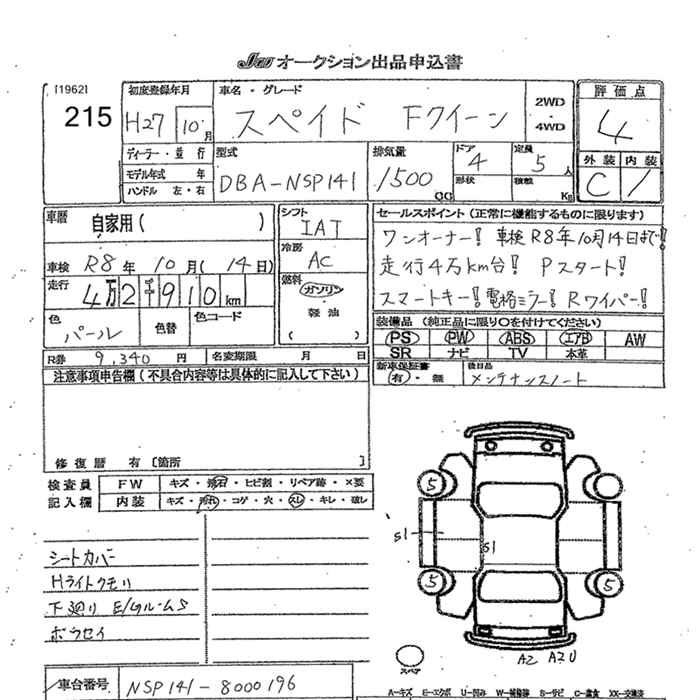 JU オークション出品申込書
[1962]
215
初度登録年月
H27 10月
車名・グレード
スペイド Fクイーン
2WD
・
4WD
評価点
4
外装 内装
C 1
ディーラー・並行
モデル年式 年
ハンドル 左・右
型式
DBA-NSP141
排気量
1500 CC
ドア
4
形状
定員
5人
積載
Kg
車歴
自家用( )
車検 R8年 10月(14日)
走行
4万2千910km
色
パール
色替
色コード
シフト
IAT
冷房
AC
燃料
ガソリン
軽油
( )
セールスポイント(正常に機能するものに限ります)
ワンオーナー! 車検R8年10月14日まで!
走行4万km台! Pスタート!
スマートキー! 電格ミラー! Rワイパー!
装備品 (純正品に限り〇を付けてください)
PS PW ABS エアB AW
SR ナビ TV 本革
新車保証書
有・無
後日品
メンテナンスノート
R券 9,340円
名変期限 月 日
注意事項申告欄(不具合内容等は具体的に記入して下さい)
修復歴 有 [箇所 ]
検査員
記入欄
FW キズ・飛石・ヒビ割・リペア跡・×要
内装 キズ・汚れ・コゲ・穴・スレ・キレ・破レ
シートカバー
Hライトクモリ
下廻り
5
5
S1
S1
5
5
スペア
A2 A2 U
車台番号 NSP141-8000196
A-キズ E-エクボ U-凹み W-補修跡 S-サビ C-腐食 XX-交換済